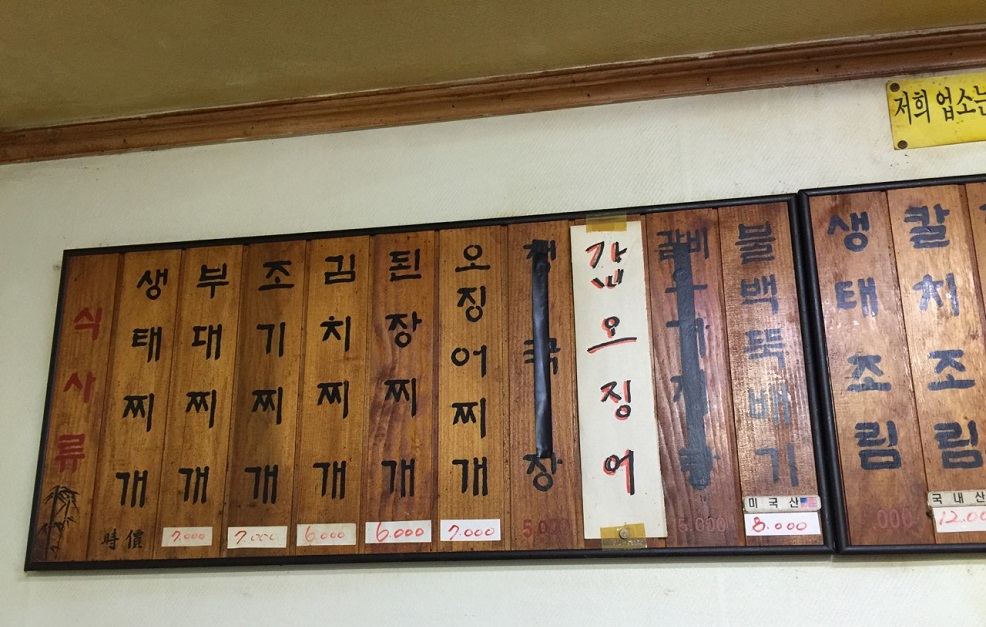 저희 업소는
식사류
생태찌개
時價
부대찌개
7.000
조기찌개
7.000
김치찌개
6.000
된장찌개
6.000
오징어찌개
7.000
국장
5.000
갑오징어
갈비
5.000
불백뚝배기
미국산
8.000
생태조림
.000
칼치조림
국내산
12.00